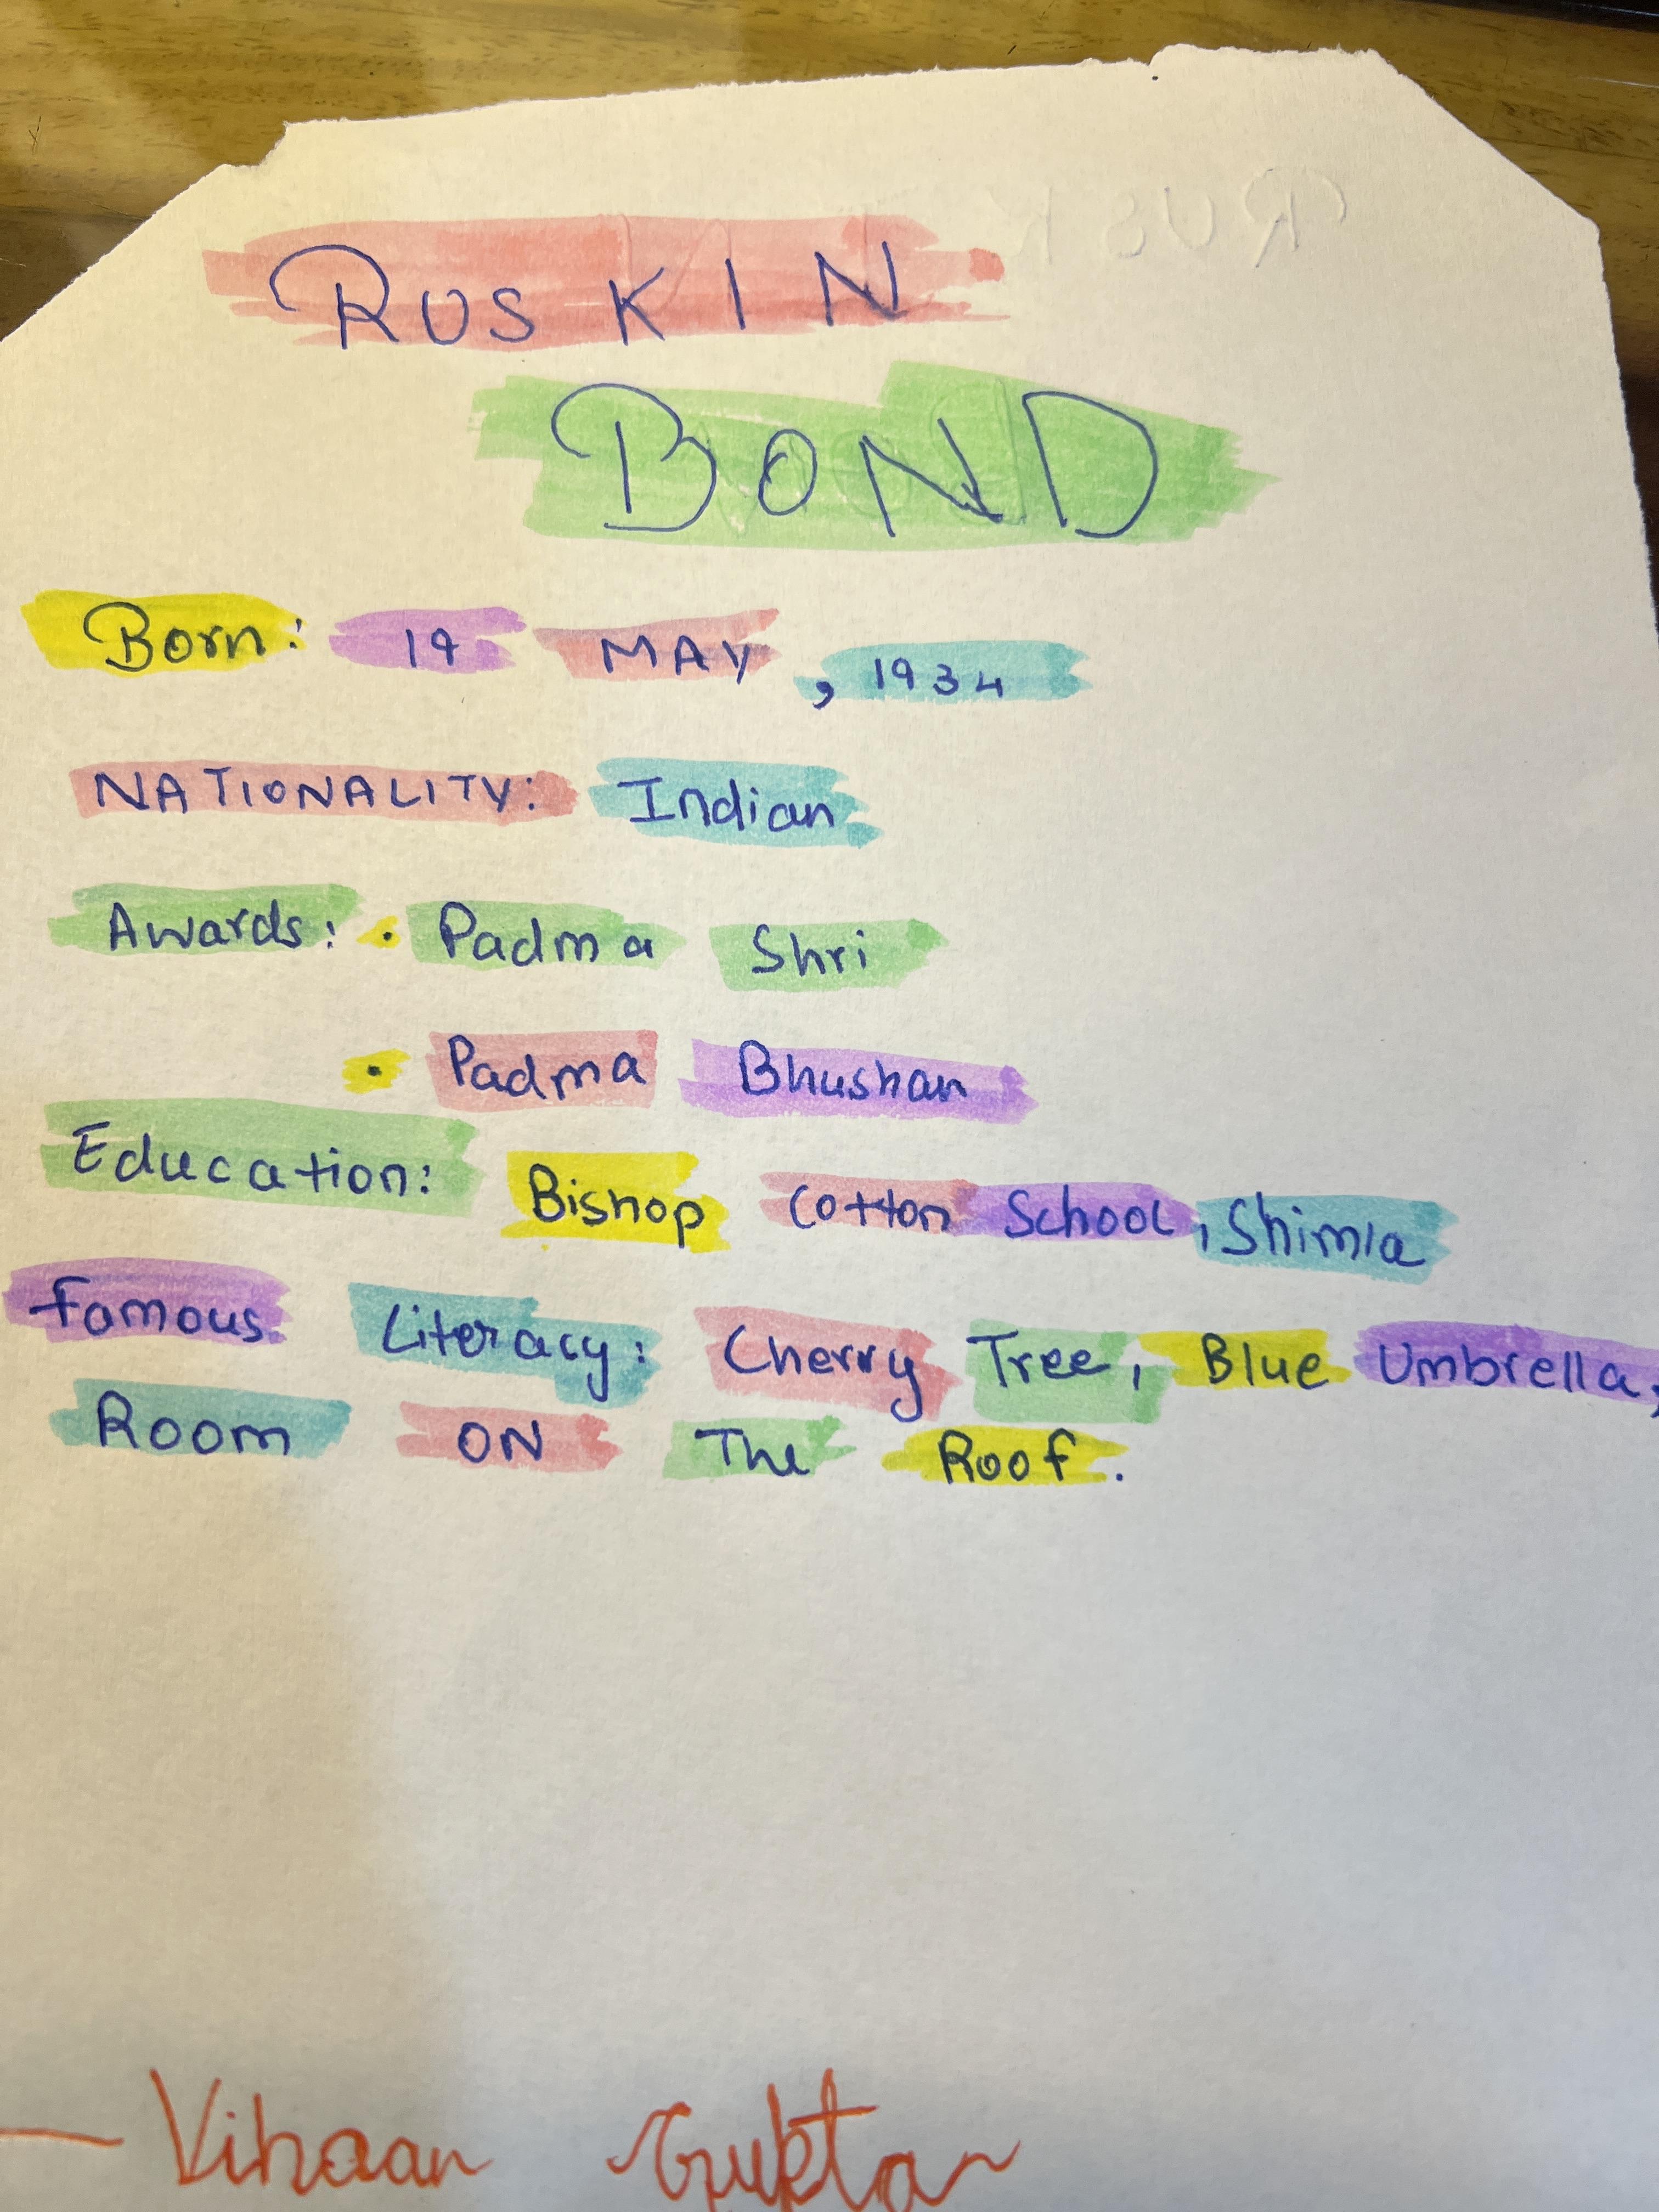 RUSKIN
BOND
Born: 19 MAY, 1934
NATIONALITY: Indian
Awards: • Padma Shri
• Padma Bhushan
Education: Bishop Cotton School, Shimla
Famous Literacy: Cherry Tree, Blue Umbrella,
Room ON The Roof.
— Vihaan Gupta